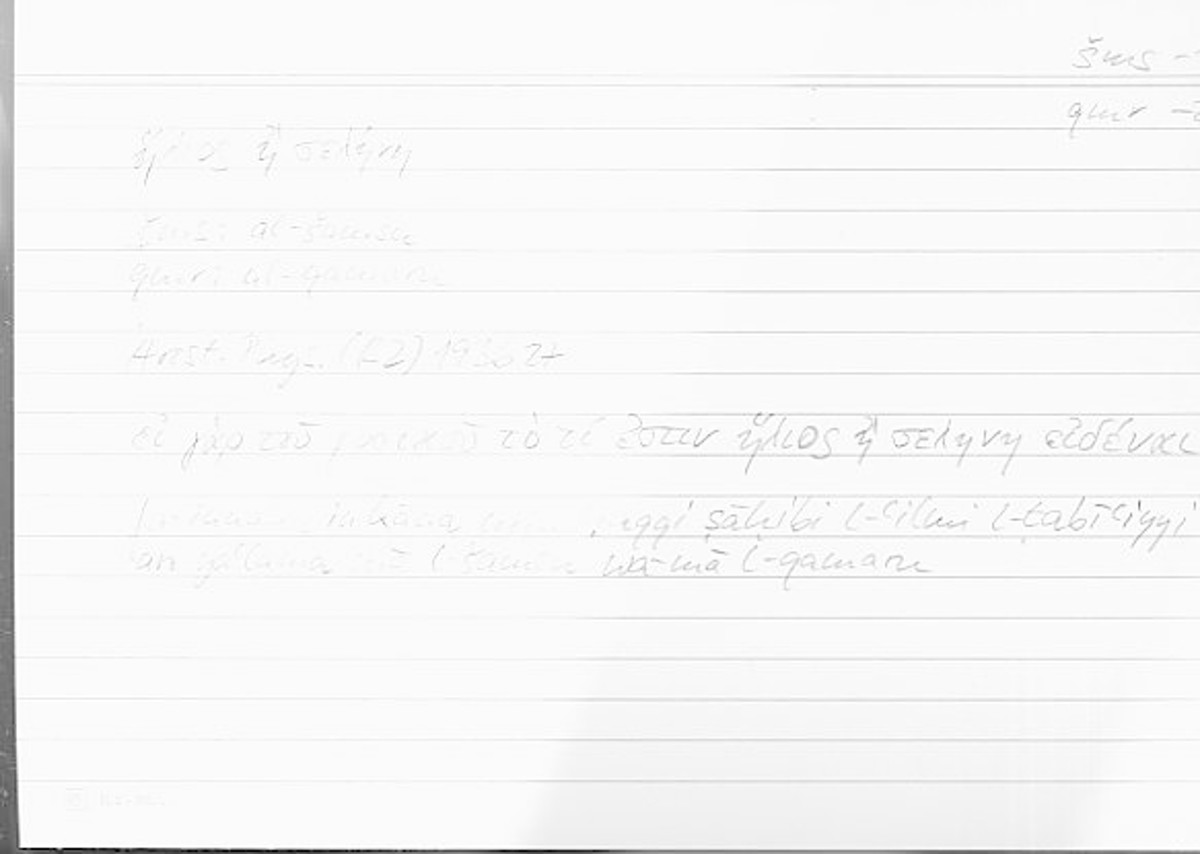 šms -
qmr -
ἥλιος ἢ σελήνη
šms: al-šamsu
qmr: al-qamaru
Arist. Phys. (B2) 193b 27
εἰ γὰρ τοῦ φυσικοῦ τὸ τί ἐστιν ἥλιος ἢ σελήνη εἰδέναι
in kāna ṣāḥibi l-ʿilmi l-ṭabīʿiyyi
an yaʿlama mā l-šamsu wa-mā l-qamaru